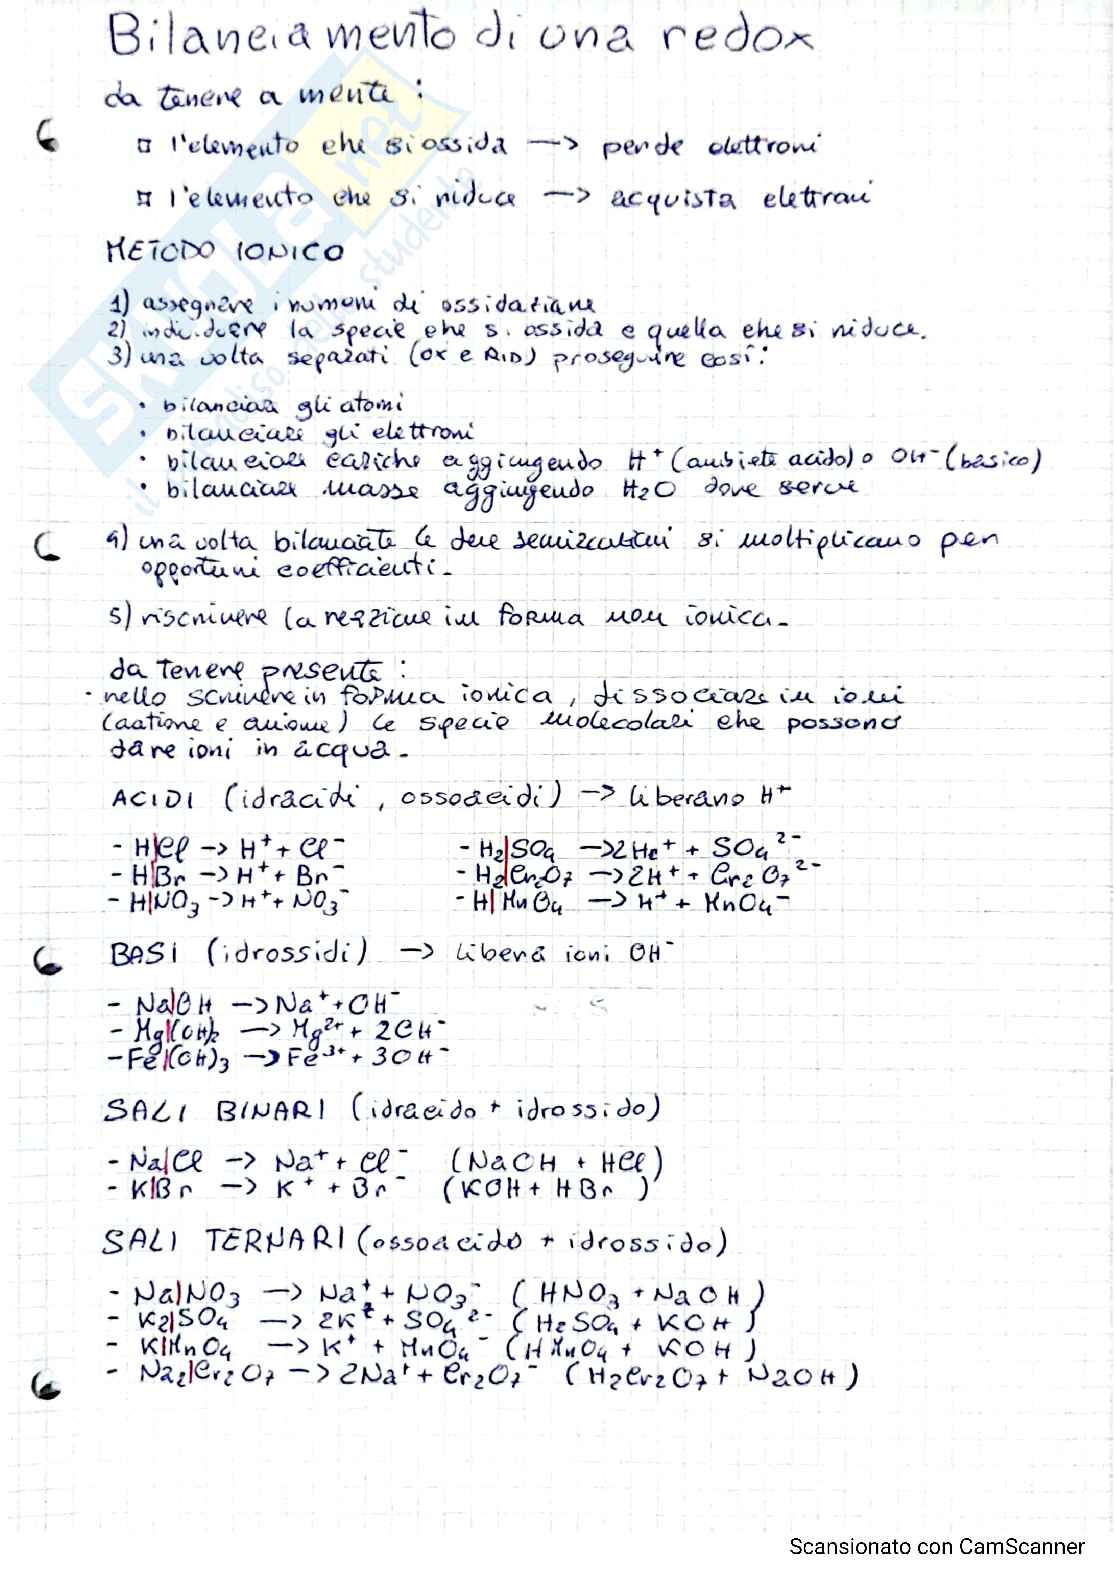 Bilanciamento di una redox
da tenere a mente :
l'elemento che si ossida —> perde elettroni
l'elemento che si riduce —> acquista elettroni
METODO IONICO
1) assegnare i numeri di ossidazione
2) individuare la specie che si ossida e quella che si riduce.
3) una volta separati (OX e RID) proseguire così:
• bilanciare gli atomi
• bilanciare gli elettroni
• bilanciare cariche aggiungendo H⁺ (ambiete acido) o OH⁻ (basico)
• bilanciare masse aggiungendo H₂O dove serve
4) una volta bilanciate le due semireazioni si moltiplicano per
opportuni coefficienti.
5) riscrivere la reazione in forma non ionica.
da tenere presente :
· nello scrivere in forma ionica, dissociare in ioni
(catione e anione) le specie molecolari che possono
dare ioni in acqua.
ACIDI (idracidi, ossoacidi) —> liberano H⁺
- H|Cl —> H⁺ + Cl⁻ - H₂|SO₄ —> 2H⁺ + SO₄²⁻
- H|Br —> H⁺ + Br⁻ - H₂|Cr₂O₇ —> 2H⁺ + Cr₂O₇²⁻
- H|NO₃ —> H⁺ + NO₃⁻ - H|MnO₄ —> H⁺ + MnO₄⁻
BASI (idrossidi) —> libera ioni OH⁻
- Na|OH —> Na⁺ + OH⁻
- Mg|(OH)₂ —> Mg²⁺ + 2OH⁻
- Fe|(OH)₃ —> Fe³⁺ + 3OH⁻
SALI BINARI (idracido + idrossido)
- Na|Cl —> Na⁺ + Cl⁻ (NaOH + HCl)
- K|Br —> K⁺ + Br⁻ (KOH + HBr)
SALI TERNARI (ossoacido + idrossido)
- Na|NO₃ —> Na⁺ + NO₃⁻ (HNO₃ + NaOH)
- K₂|SO₄ —> 2K⁺ + SO₄²⁻ (H₂SO₄ + KOH)
- K|MnO₄ —> K⁺ + MnO₄⁻ (HMnO₄ + KOH)
- Na₂|Cr₂O₇ —> 2Na⁺ + Cr₂O₇⁻ (H₂Cr₂O₇ + NaOH)
SKUOLA.net
Scansionato con CamScanner